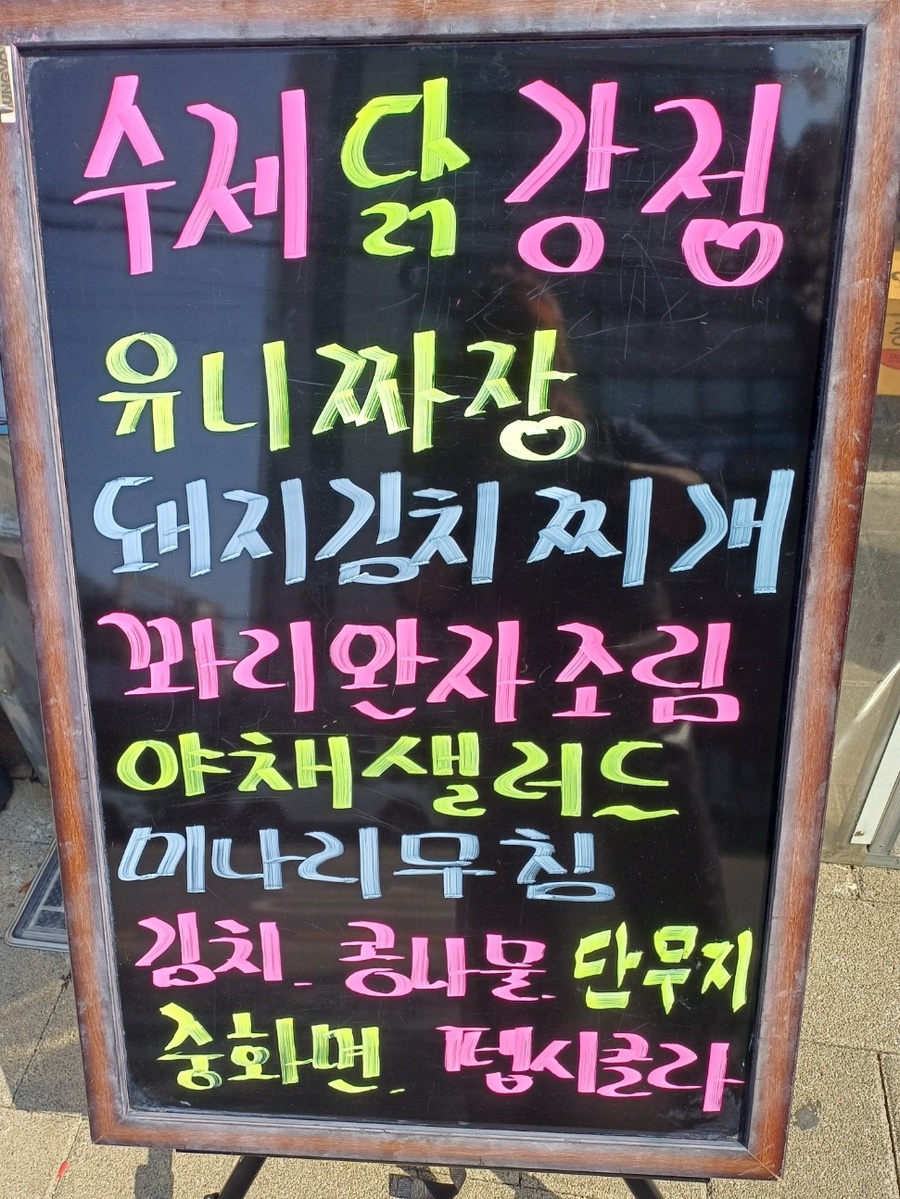 수제 닭 강정
유니 짜장
돼지김치 찌개
꽈리완자조림
야채 샐러드
미나리무침
김치. 콩나물. 단무지
중화면. 펩시콜라